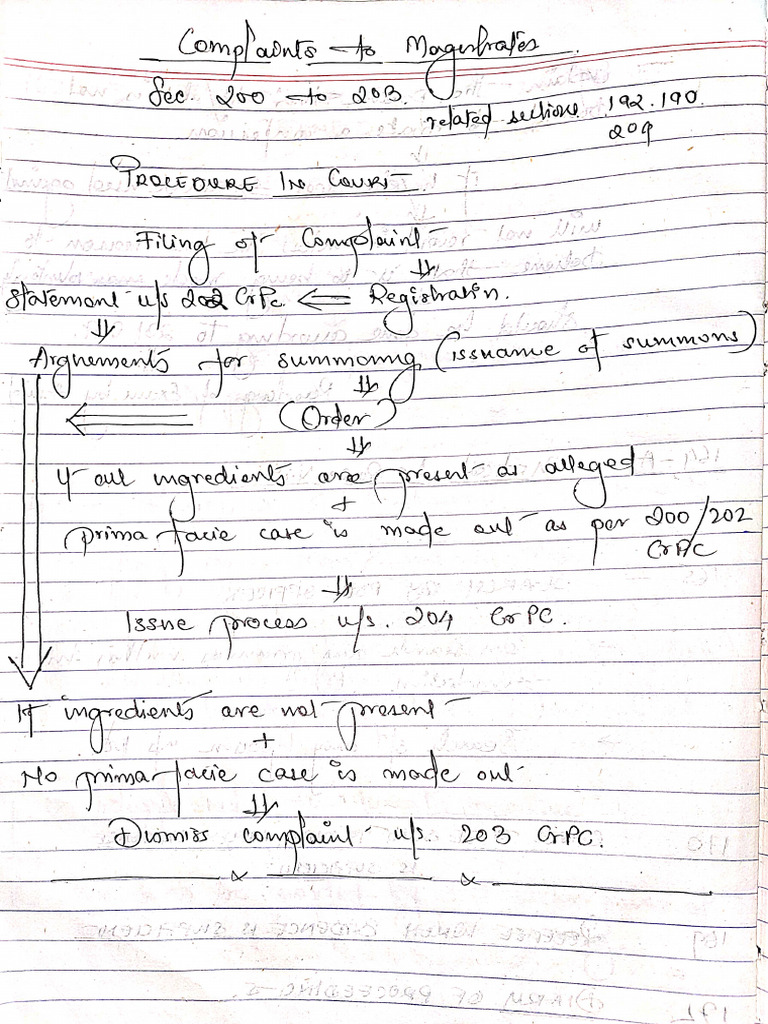 Complaints to Magistrates.
Sec. 200 to 203.
related sections 192.190.
204
PROCEDURE IN COURT
Filing of Complaint
⇓
Statement u/s 202 CrPc. ⇐ Registratin.
⇓
Arguements for summoning (issuance of summons)
⇓
⇐ (Order)
⇓
If all ingredients are present as alleged
+
prima facie case is made out as per 200/202
CrPC
⇓
Issue process u/s. 204 CrPC.
If ingredients are not present
+
No prima-facie case is made out
⇓
Dismiss complaint u/s 203 CrPC.